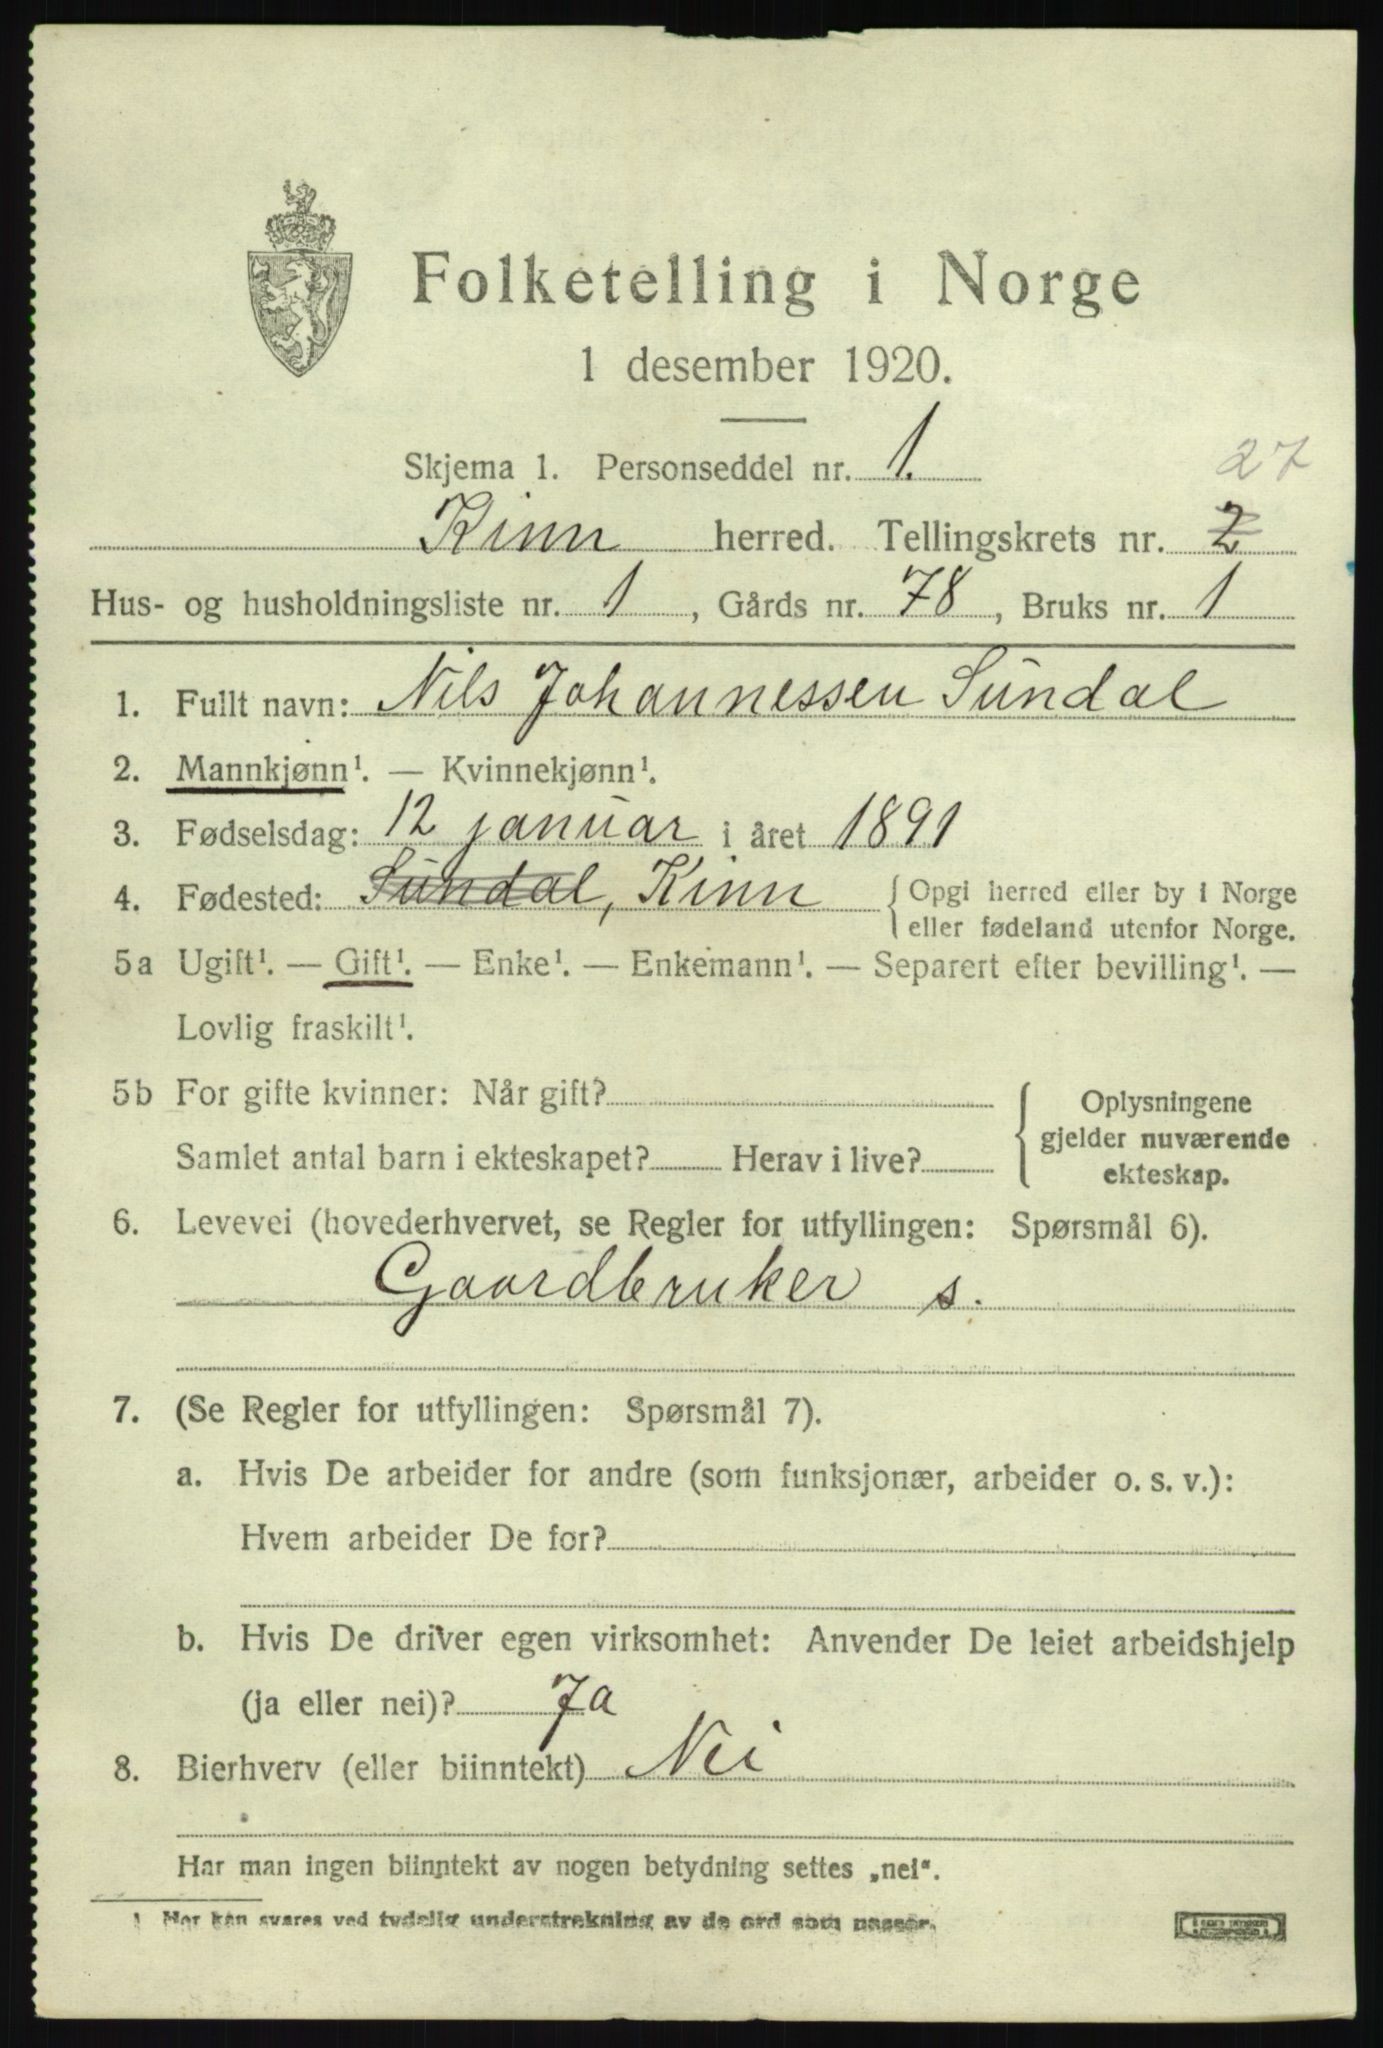 Folketelling i Norge
1 desember 1920.
Skjema 1. Personseddel nr. 1.
27
Kinn herred. Tellingskrets nr. 2
Hus- og husholdningsliste nr. 1, Gårds nr. 78, Bruks nr. 1
1. Fullt navn: Nils Johannessen Sundal
2. Mannkjønn¹. — Kvinnekjønn¹.
3. Fødselsdag: 12 januar i året 1891
4. Fødested: Sundal, Kinn { Opgi herred eller by i Norge
eller fødeland utenfor Norge.
5a Ugift¹. — Gift¹. — Enke¹. — Enkemann¹. — Separert efter bevilling¹. —
Lovlig fraskilt¹.
5b For gifte kvinner: Når gift?
Samlet antal barn i ekteskapet? Herav i live?
{ Oplysningene
gjelder nuværende
ekteskap.
6. Levevei (hovederhvervet, se Regler for utfyllingen: Spørsmål 6).
Gaardbruker s.
7. (Se Regler for utfyllingen: Spørsmål 7).
a. Hvis De arbeider for andre (som funksjonær, arbeider o. s. v.):
Hvem arbeider De for?
b. Hvis De driver egen virksomhet: Anvender De leiet arbeidshjelp
(ja eller nei)? Ja
8. Bierhverv (eller biinntekt) Nei
Har man ingen biinntekt av nogen betydning settes „nei“.
1 Her kan svares ved tydelig understrekning av de ord som passer.